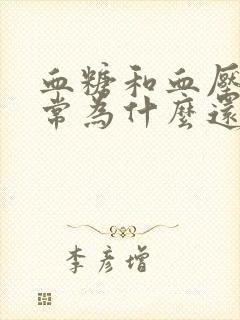 血糖和血壓
常為什麼還
李彥增